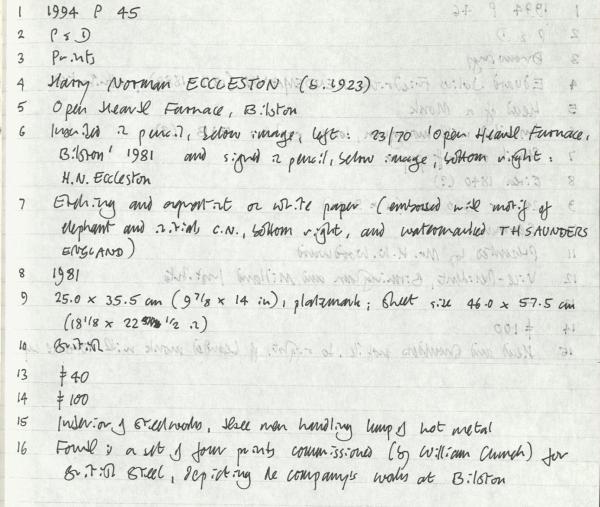 1 1994 P 45
2 P & D
3 Prints
4 Harry Norman ECCLESTON (b. 1923)
5 Open Hearth Furnace, Bilston
6 Inscribed in pencil, below image, left: 23/70 'Open Hearth Furnace,
Bilston' 1981 and signed in pencil, below image, bottom right:
H.N. Eccleston
7 Etching and aquatint on white paper (embossed with motif of
elephant and initials C.N., bottom right, and watermarked TH SAUNDERS
ENGLAND)
8 1981
9 25.0 x 35.5 cm (9 7/8 x 14 in), platemark; sheet size 46.0 x 57.5 cm
(18 1/8 x 22 1/2 in)
10 British
13 £40
14 £100
15 Interior of steelworks, three men handling lump of hot metal
16 Fourth in a set of four prints commissioned (by William Church) for
British Steel, depicting the company's works at Bilston